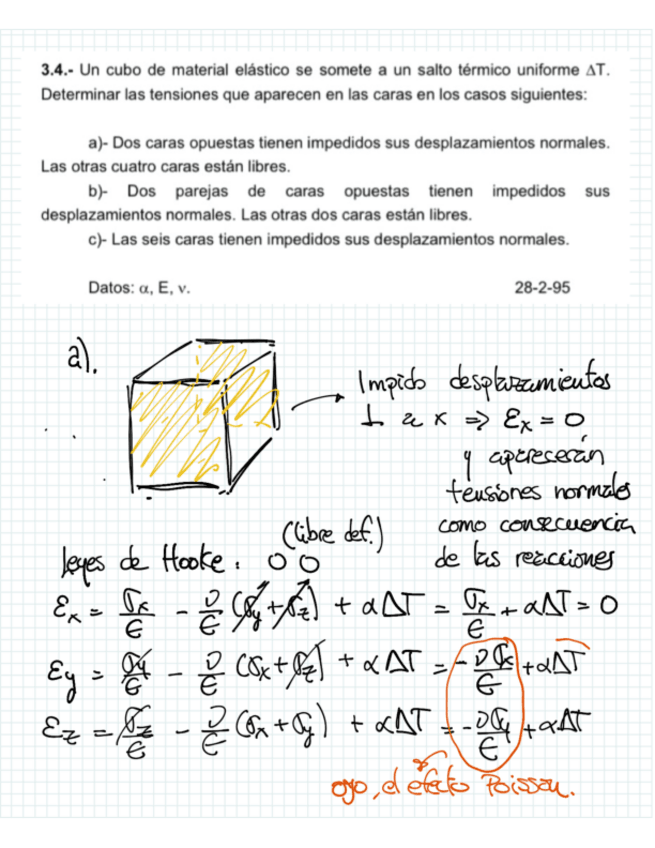 3.4.- Un cubo de material elástico se somete a un salto térmico uniforme ΔT.
Determinar las tensiones que aparecen en las caras en los casos siguientes:
a)- Dos caras opuestas tienen impedidos sus desplazamientos normales.
Las otras cuatro caras están libres.
b)- Dos parejas de caras opuestas tienen impedidos sus
desplazamientos normales. Las otras dos caras están libres.
c)- Las seis caras tienen impedidos sus desplazamientos normales.
Datos: α, E, ν. 28-2-95
a).
Impido desplazamientos
⊥ a x ⇒ εx = 0
y aparecerán
tensiones normales
como consecuencia
de las reacciones
(libre def.)
leyes de Hooke: 0 0
εx = σx/E - ν/E (σy+σz) + αΔT = σx/E + αΔT = 0
εy = σy/E - ν/E (σx+σz) + αΔT = -νσx/E + αΔT
εz = σz/E - ν/E (σx+σy) + αΔT = -νσy/E + αΔT
ojo, el efecto Poisson.